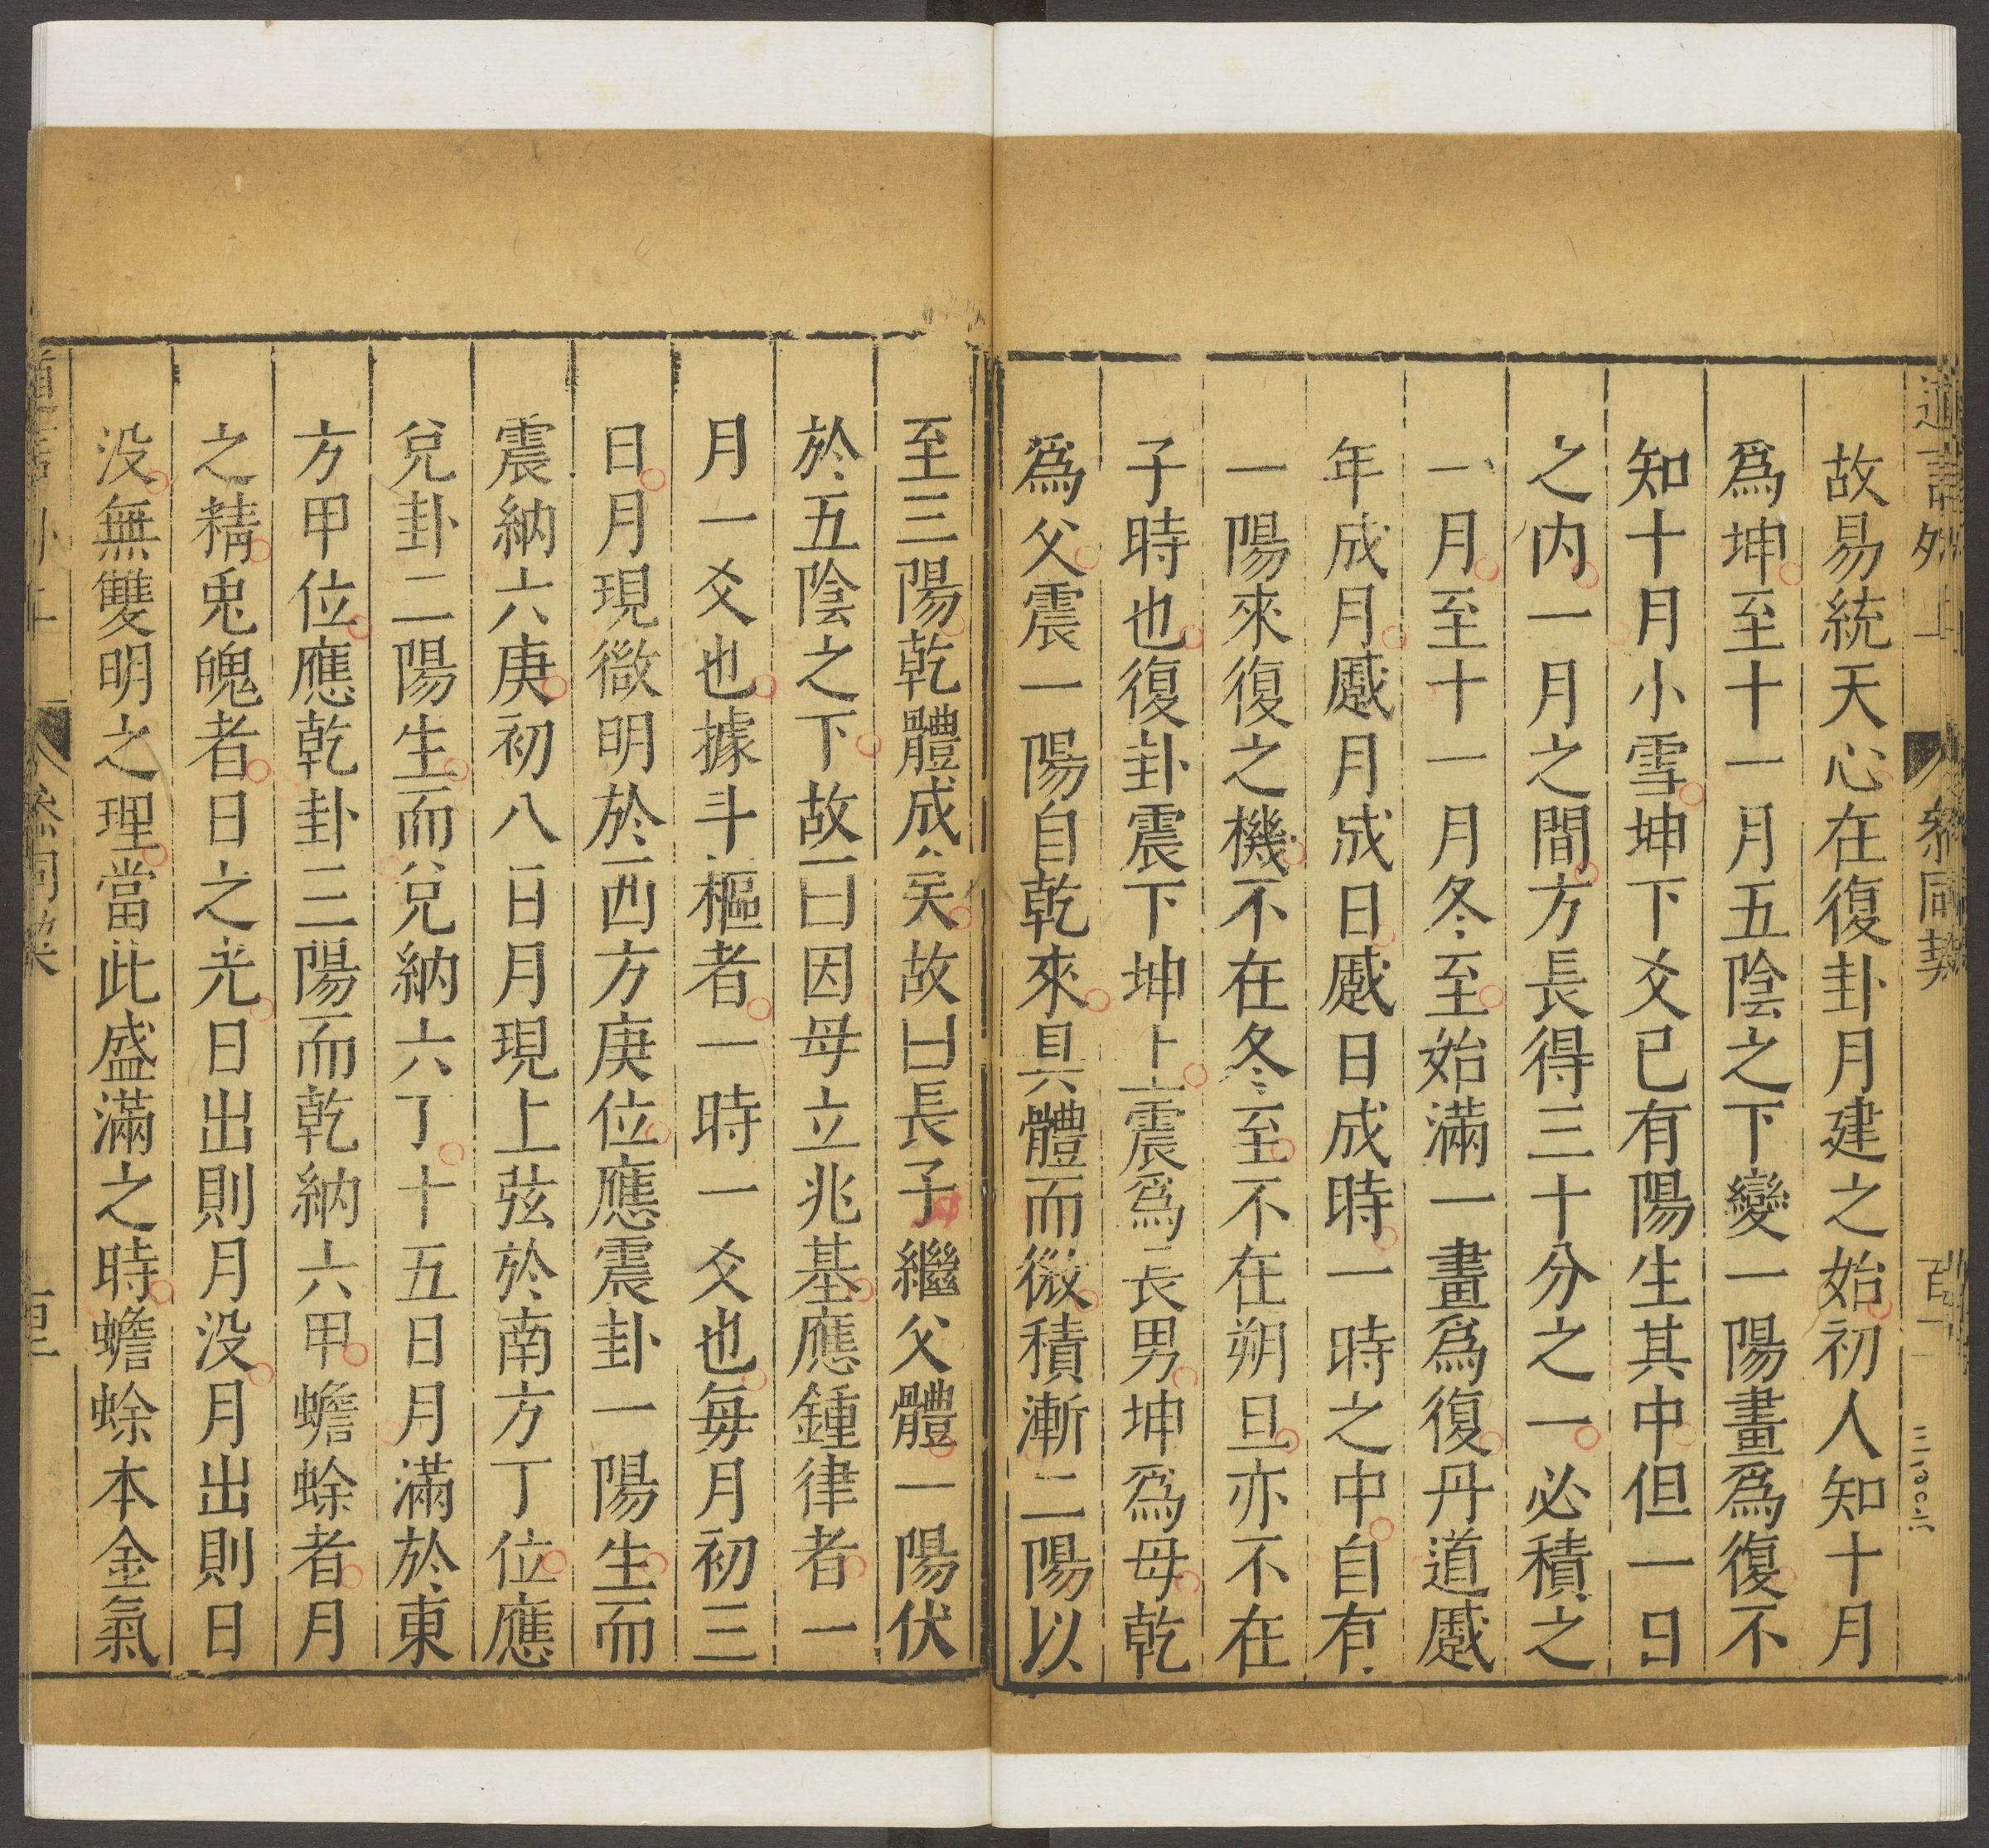 道言外 上 參同契
故易統天心在復卦月建之始初人知十月
爲坤至十一月五陰之下變一陽畫爲復不
知十月小雪坤下爻已有陽生其中但一日
之内一月之間方長得三十分之一必積之
一月至十一月冬至始滿一畫爲復丹道蹙
年成月蹙月成日蹙日成時一時之中自有
一陽來復之機不在冬至不在朔旦亦不在
子時也復卦震下坤上震爲長男坤爲母乾
爲父震一陽自乾來具體而微積漸二陽以
至三陽乾體成矣故曰長子繼父體一陽伏
於五陰之下故曰因母立兆基應鍾律者一
月一爻也據斗樞者一時一爻也每月初三
日月現微明於西方庚位應震卦一陽生而
震納六庚初八日月現上弦於南方丁位應
兌卦二陽生而兌納六丁十五日月滿於東
方甲位應乾卦三陽而乾納六甲蟾蜍者月
之精兎魄者日之光日出則月没月出則日
没無雙明之理當此盛滿之時蟾蜍本金氣
參同契